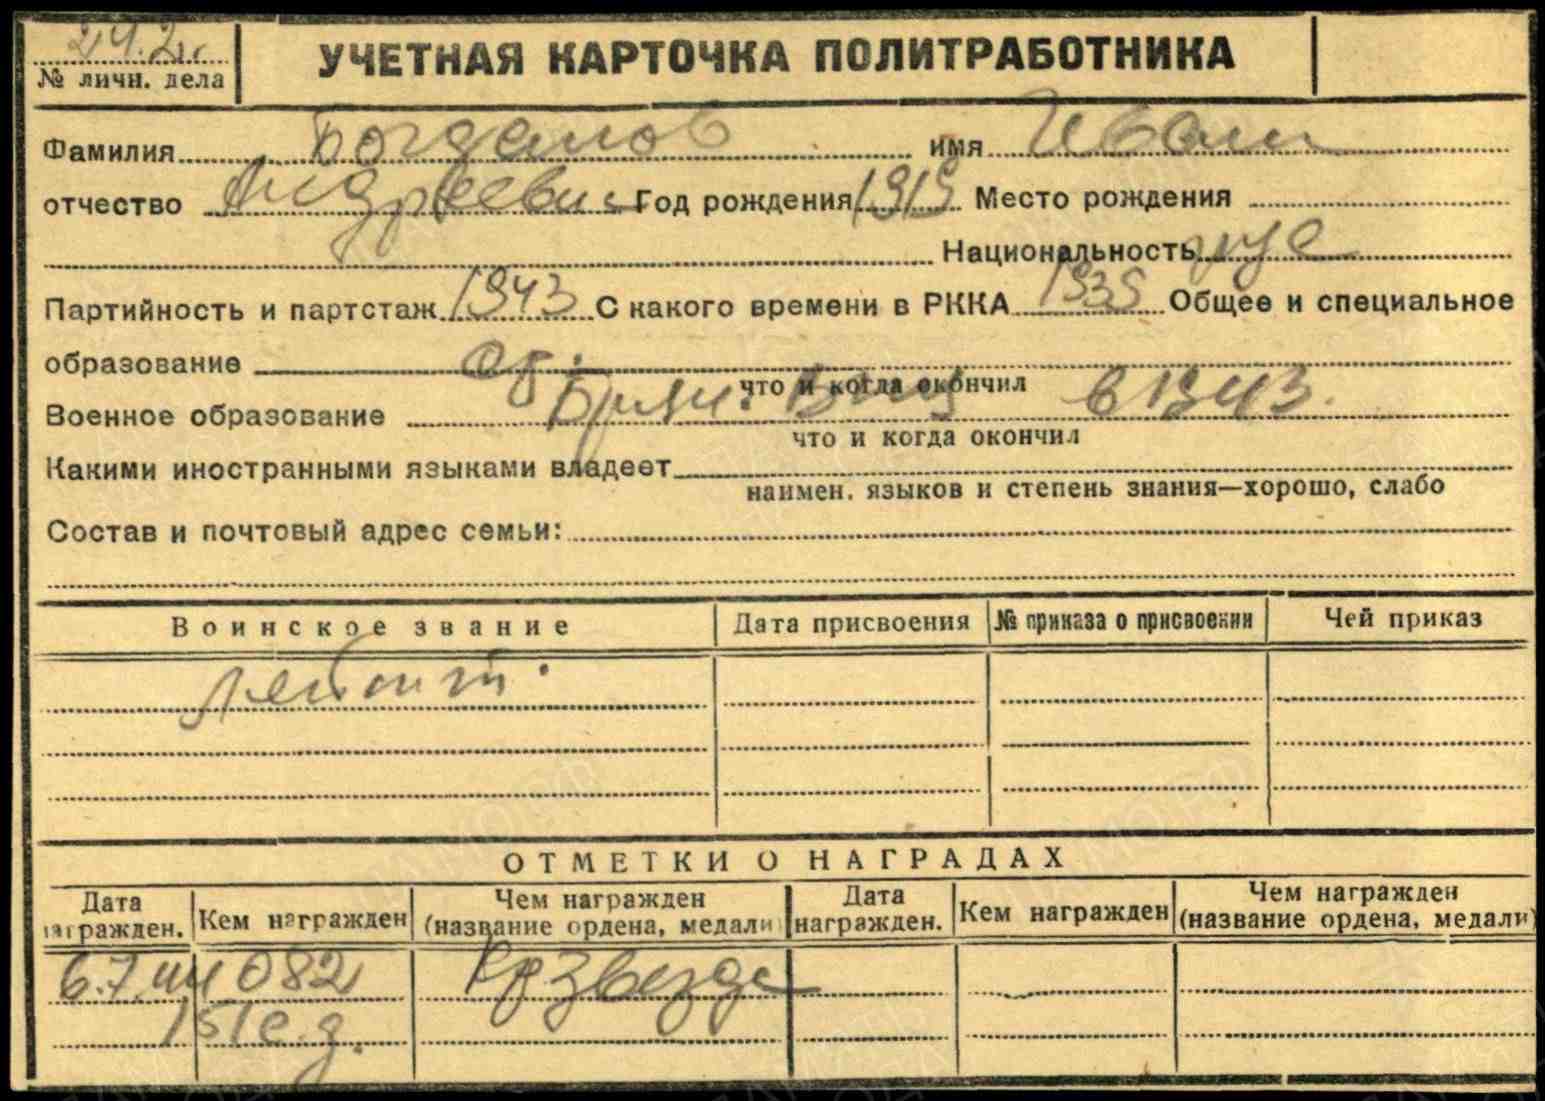 24.2г.
№ личн. дела
УЧЕТНАЯ КАРТОЧКА ПОЛИТРАБОТНИКА
Фамилия Богданов имя Иван
отчество Андреевич Год рождения 1919 Место рождения
Национальность рус
Партийность и партстаж 1943 С какого времени в РККА 1939 Общее и специальное
образование ср.
что и когда окончил
Военное образование в 1943.
что и когда окончил
Какими иностранными языками владеет
наимен. языков и степень знания—хорошо, слабо
Состав и почтовый адрес семьи:
Воинское звание Дата присвоения № приказа о присвоении Чей приказ
Лейт-т.
ОТМЕТКИ О НАГРАДАХ
Дата награжден. Кем награжден Чем награжден (название ордена, медали) Дата награжден. Кем награжден Чем награжден (название ордена, медали)
6.7.44 082 Кр Звезда
151 с.д.